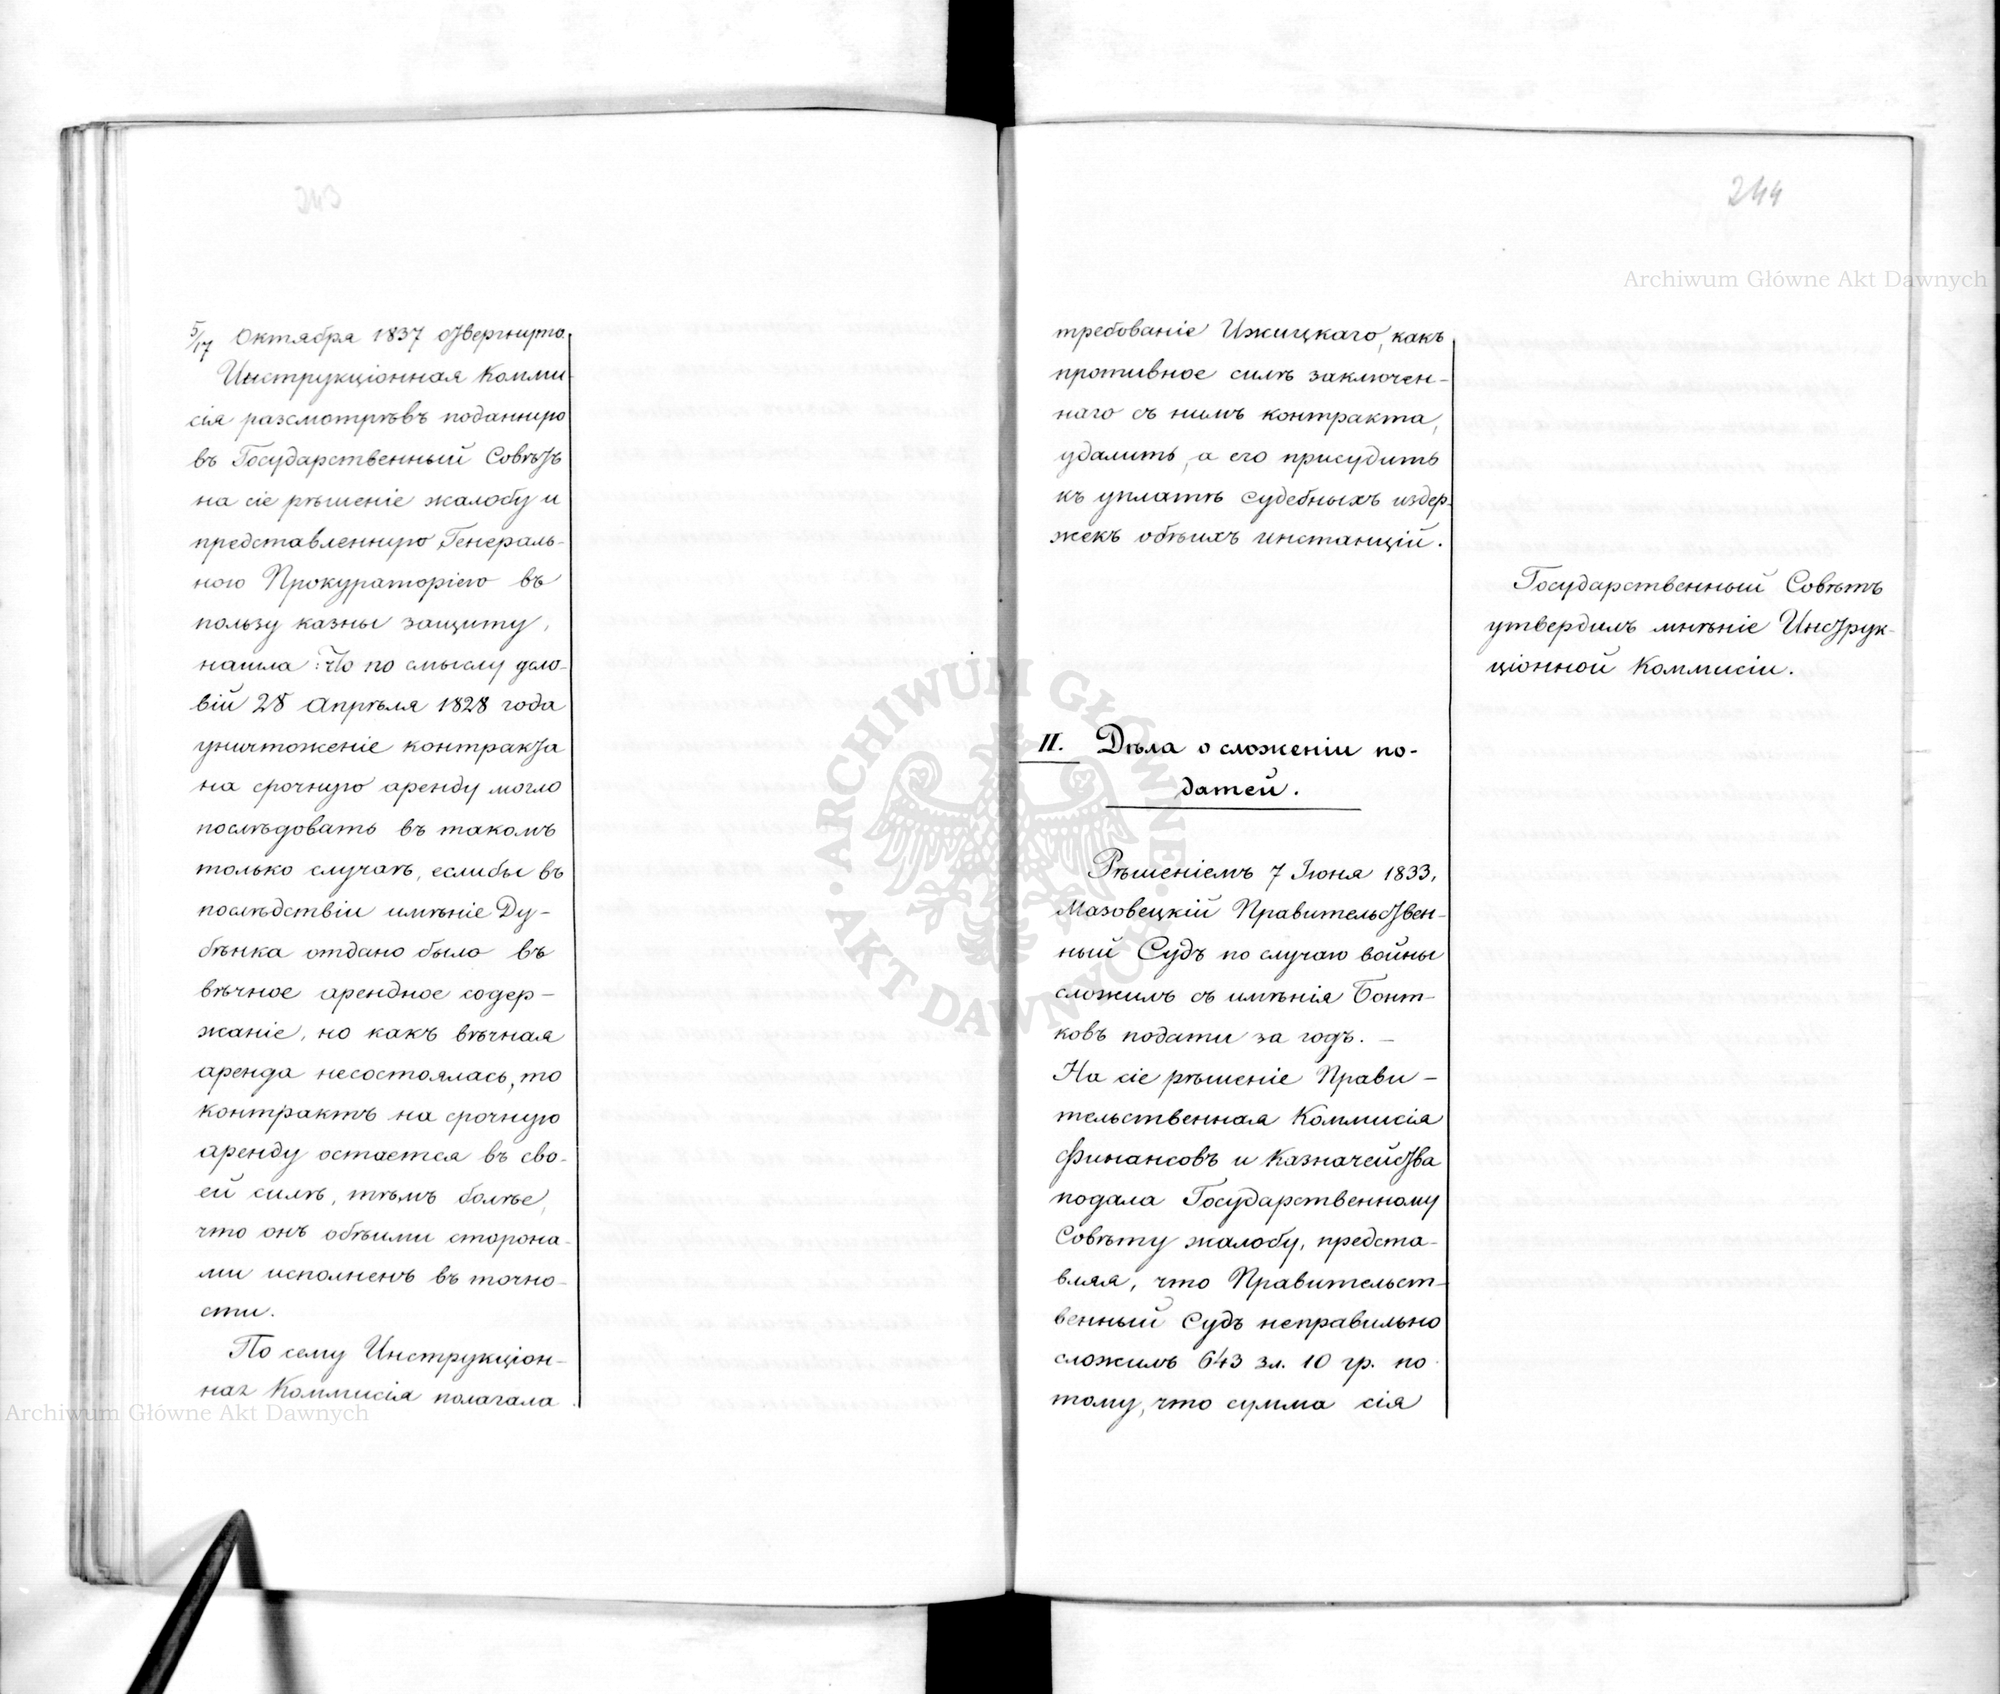 243
5/17 Октября 1837 отвергнуто.
Инструкціонная Комми-
сія разсмотрѣвъ поданную
въ Государственный Совѣтъ
на сіе рѣшеніе жалобу и
представленную Генераль-
ною Прокураторіею въ
пользу казны защиту,
нашла: Что по смыслу усло-
вій 28 Апрѣля 1828 года
уничтоженіе контракта
на срочную аренду могло
послѣдовать въ такомъ
только случаѣ, еслибы въ
послѣдствіи имѣніе Ду-
бѣнка отдано было въ
вѣчное арендное содер-
жаніе, но какъ вѣчная
аренда несостоялась, то
контрактъ на срочную
аренду остается въ сво-
ей силѣ, тѣмъ болѣе,
что онъ обѣими сторона-
ми исполненъ въ точно-
сти.
По сему Инструкціон-
ная Коммисія полагала
244
требованіе Ижицкаго, какъ
противное силѣ заключен-
наго съ нимъ контракта,
удалить, а его присудить
къ уплатѣ судебныхъ издер-
жекъ обѣихъ инстанцій.
Государственный Совѣтъ
утвердилъ мнѣніе Инструк-
ціонной Коммисіи.
II. Дѣла о сложеніи по-
датей.
Рѣшеніемъ 7 Іюня 1833,
Мазовецкій Правительствен-
ный Судъ по случаю войны
сложилъ съ имѣнія Бонт-
ковъ подати за годъ. —
На сіе рѣшеніе Прави-
тельственная Коммисія
Финансовъ и Казначейства
подала Государственному
Совѣту жалобу, предста-
вляя, что Правительст-
венный Судъ неправильно
сложилъ 643 зл. 10 гр. по
тому, что сумма сія
Archiwum Główne Akt Dawnych
Archiwum Główne Akt Dawnych
ARCHIWUM GŁÓWNE AKT DAWNYCH